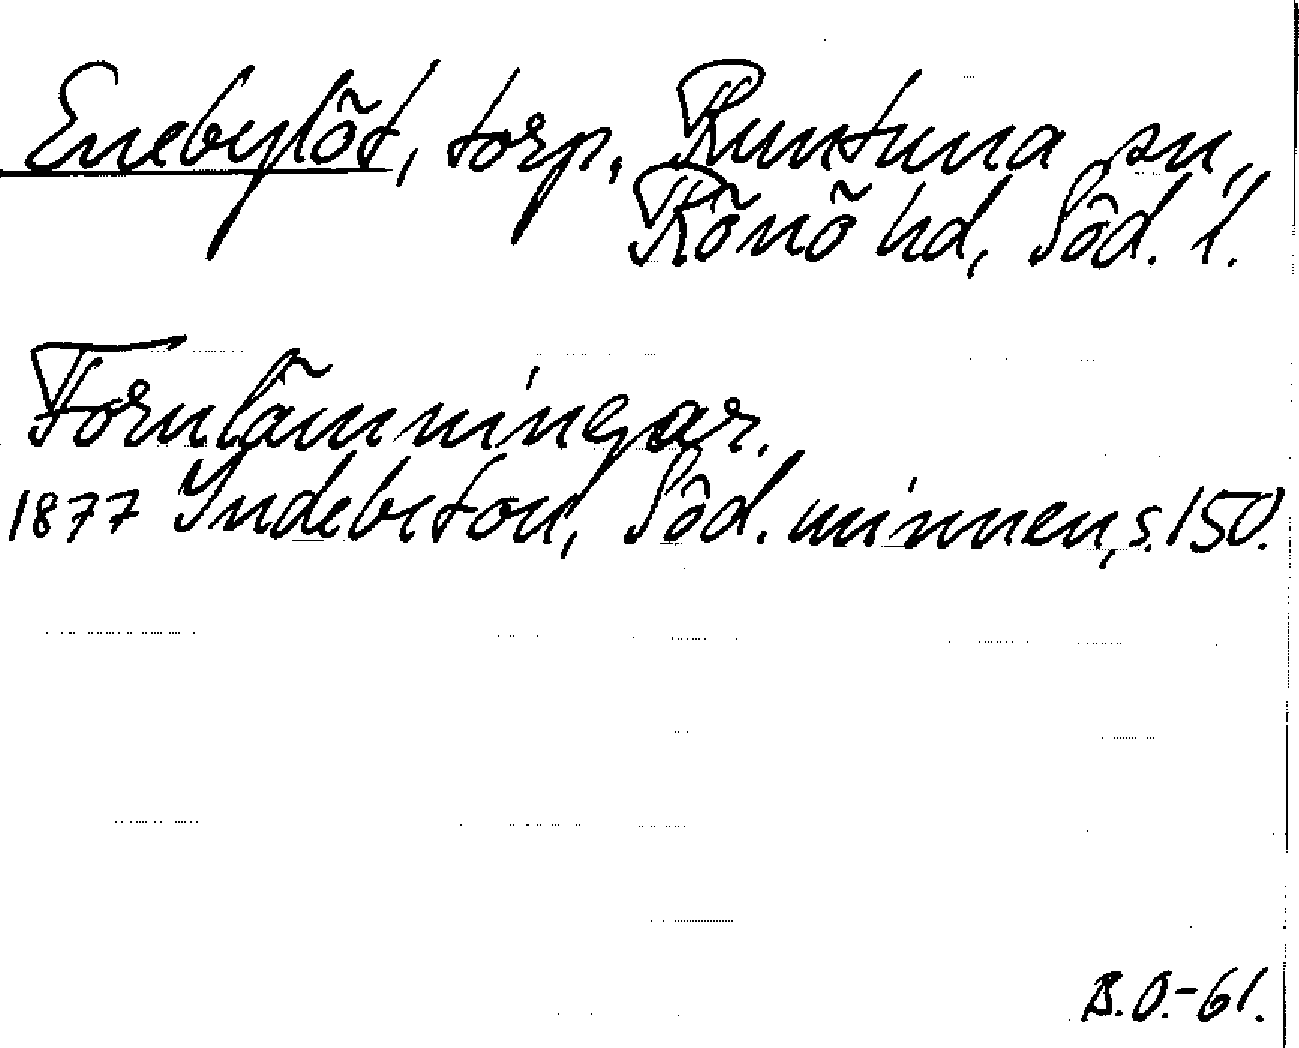 Enebylöt, torp, Runtuna sn,
Rönö hd, Söd. l.
Fornlämningar.
1877 Indebetou, Söd. minnen, s. 150.
B.O.-61.